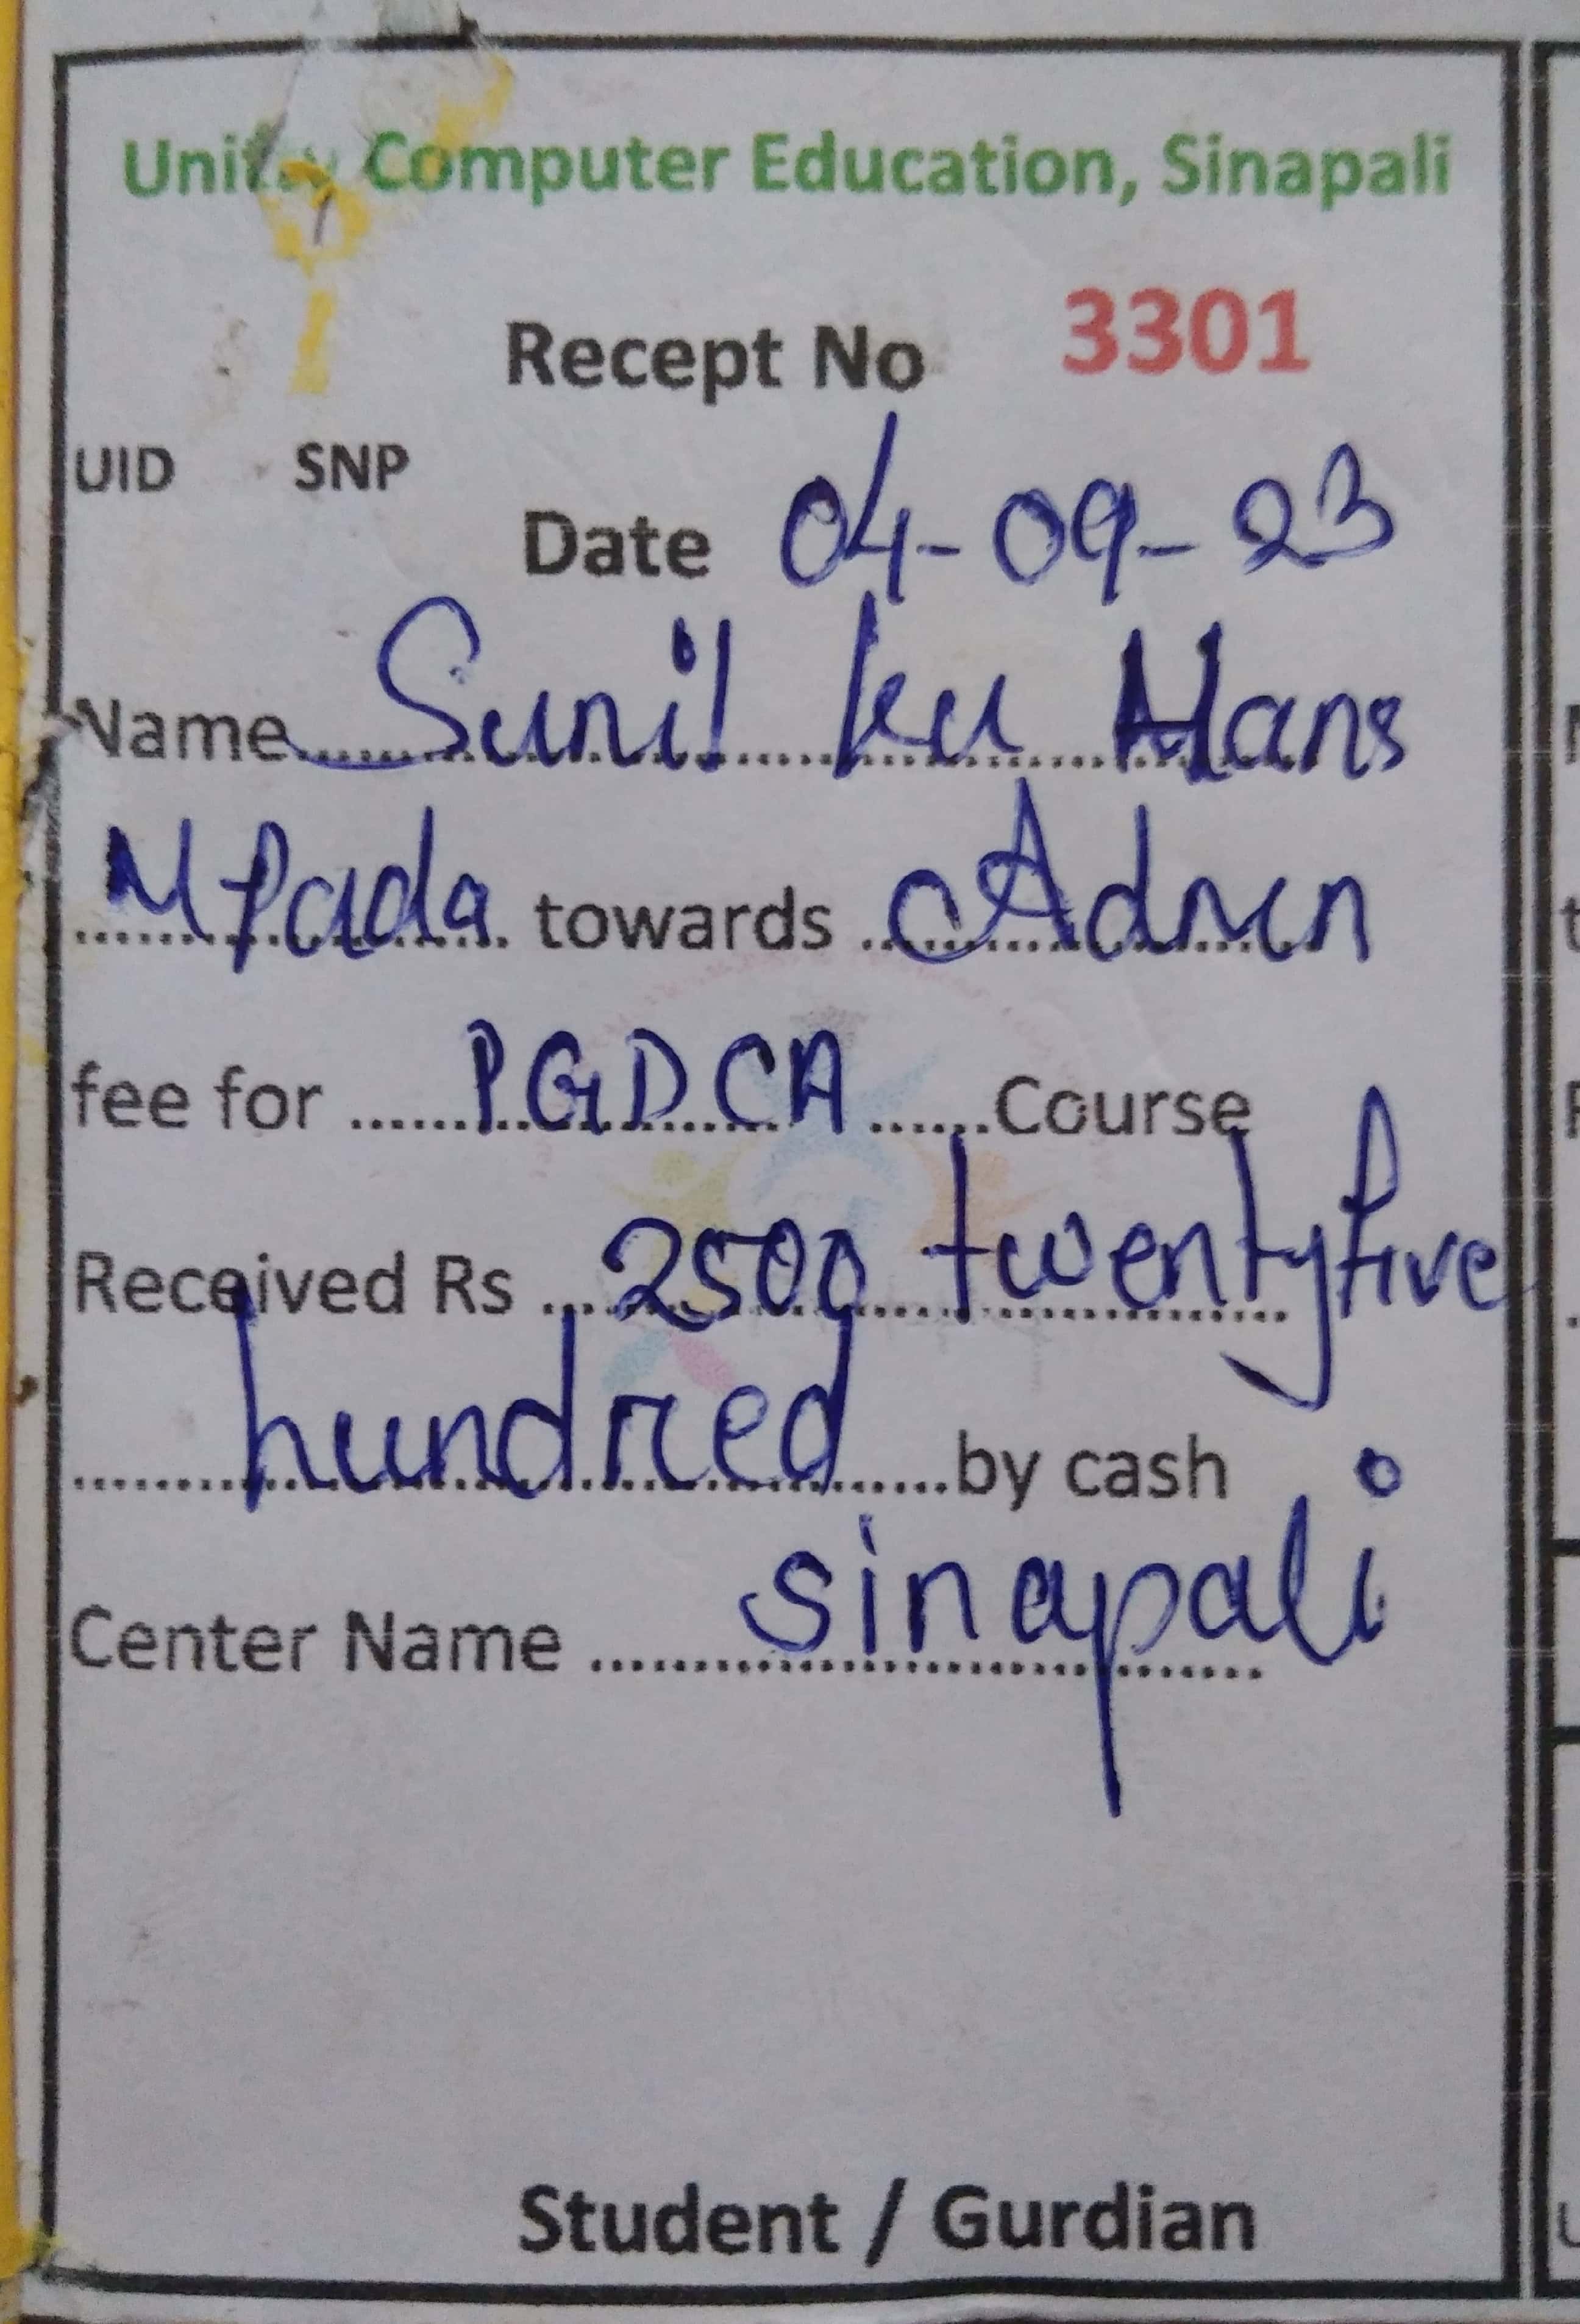 Computer Education, Sinapali
Recept No 3301
UID SNP
Date 04-09-23
Name Sunil ku Hans
M Pada towards Admn
fee for PGDCA Course
Received Rs 2500 twentyfive
hundred by cash
Center Name sinapali
Student / Gurdian